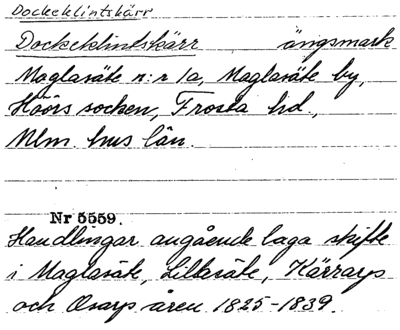 Dockeklintskärr
Dockeklintskärr ängsmark
Maglasäte n:r 1a, Maglasäte by,
Höörs socken, Frosta hd.,
Mlm. hus län.
Nr 5559.
Handlingar angående laga skifte
i Maglasäte, Lillasäte, Kärrarp
och Osarp åren 1825-1839.